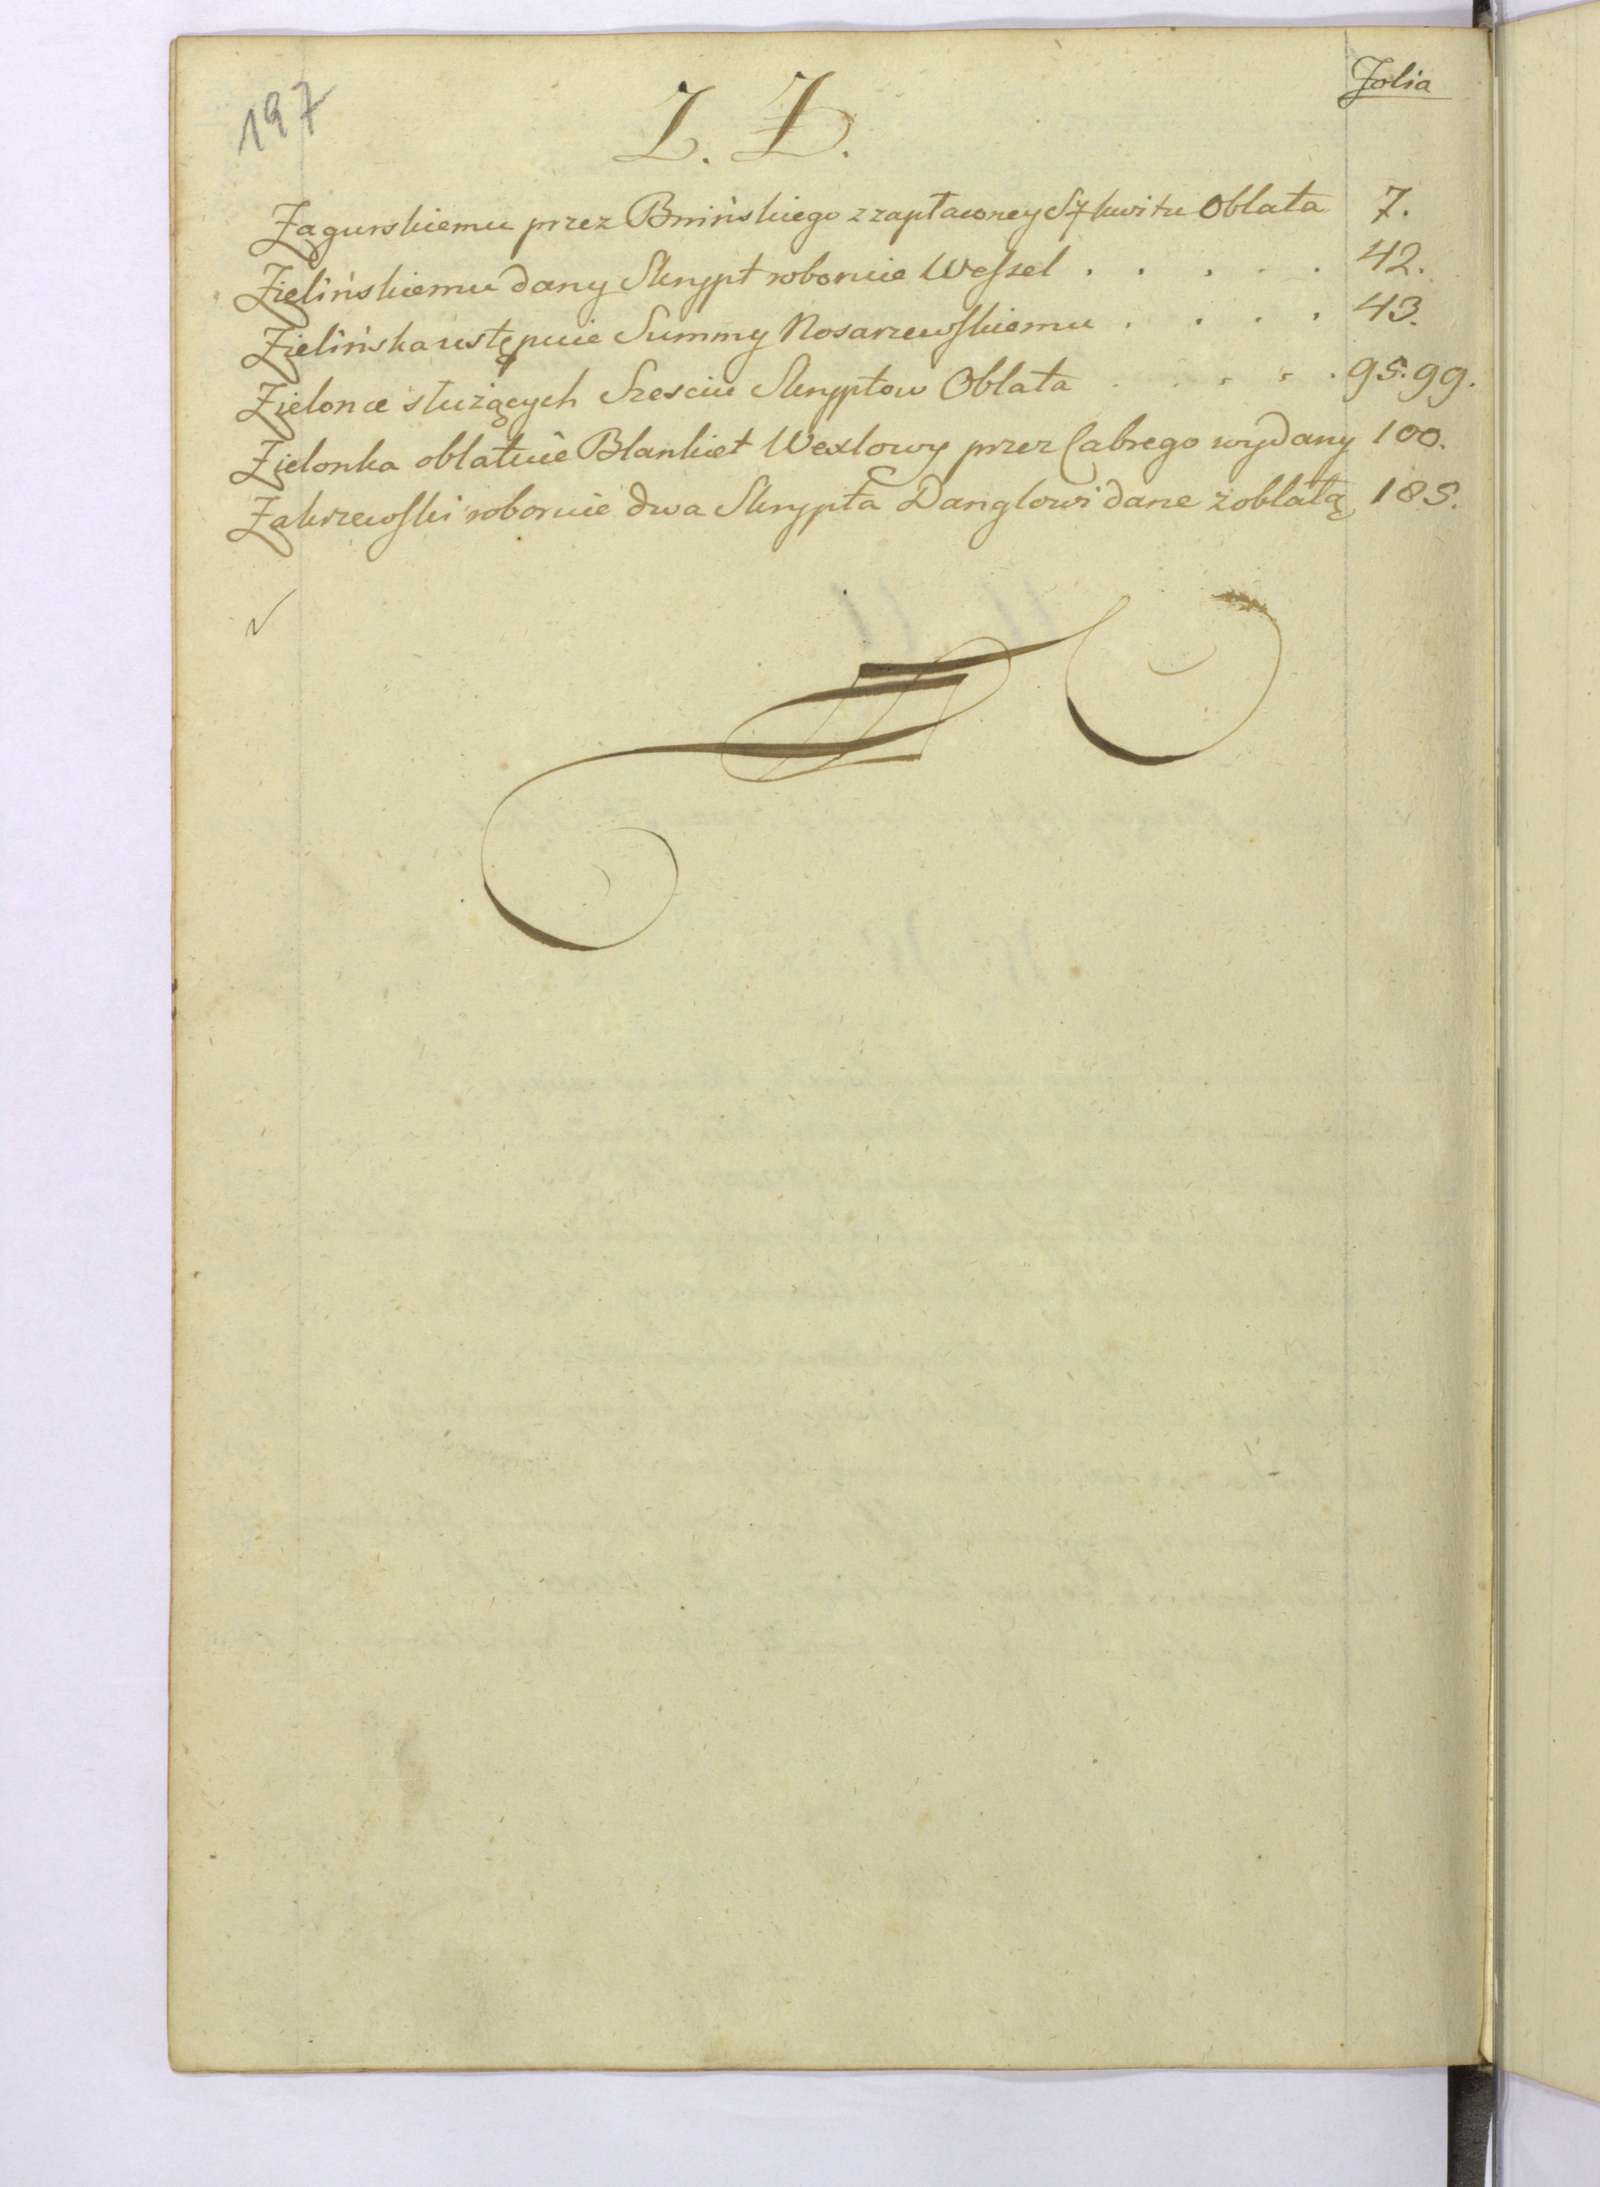 197
Folia
Z. Ż.
Zagurskiemu przez Bnińskiego z zapłaconey Sz kwitu Oblata 7.
Zielińskiemu dany Skrypt roboruie Wessel . . . . . 42.
Zielińska ustępuie Summy Rosarzewskiemu . . . . 43.
Zielonce służących Szesciu Skryptow Oblata . . . . . 95. 99.
Zielonka oblatuie Blankiet Wexlowy przez Cabrego wydany 100.
Zakrzewski roboruie dwa Skrypta Danglowi dane z oblatą 185.